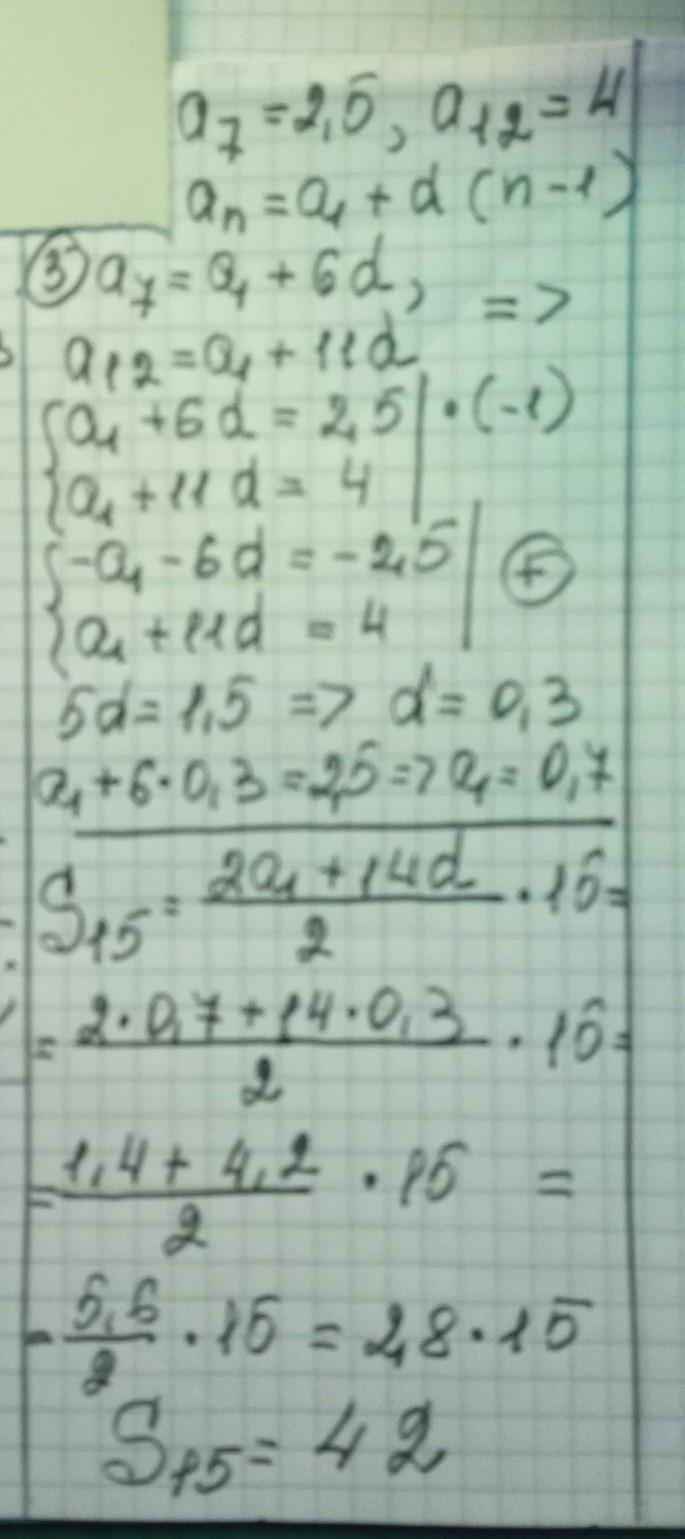 a₇ = 2,5, a₁₂ = 4
aₙ = a₁ + d (n-1)
③ a₇ = a₁ + 6d, =>
a₁₂ = a₁ + 11d
{a₁ + 6d = 2,5 | · (-1)
{a₁ + 11d = 4 |
{-a₁ - 6d = -2,5 | ⊕
{a₁ + 11d = 4 |
5d = 1,5 => d = 0,3
a₁ + 6·0,3 = 2,5 => a₁ = 0,7
S₁₅ = (2a₁ + 14d)/2 · 15 =
= (2·0,7 + 14·0,3)/2 · 15 =
= (1,4 + 4,2)/2 · 15 =
= 5,6/2 · 15 = 2,8 · 15
S₁₅ = 42